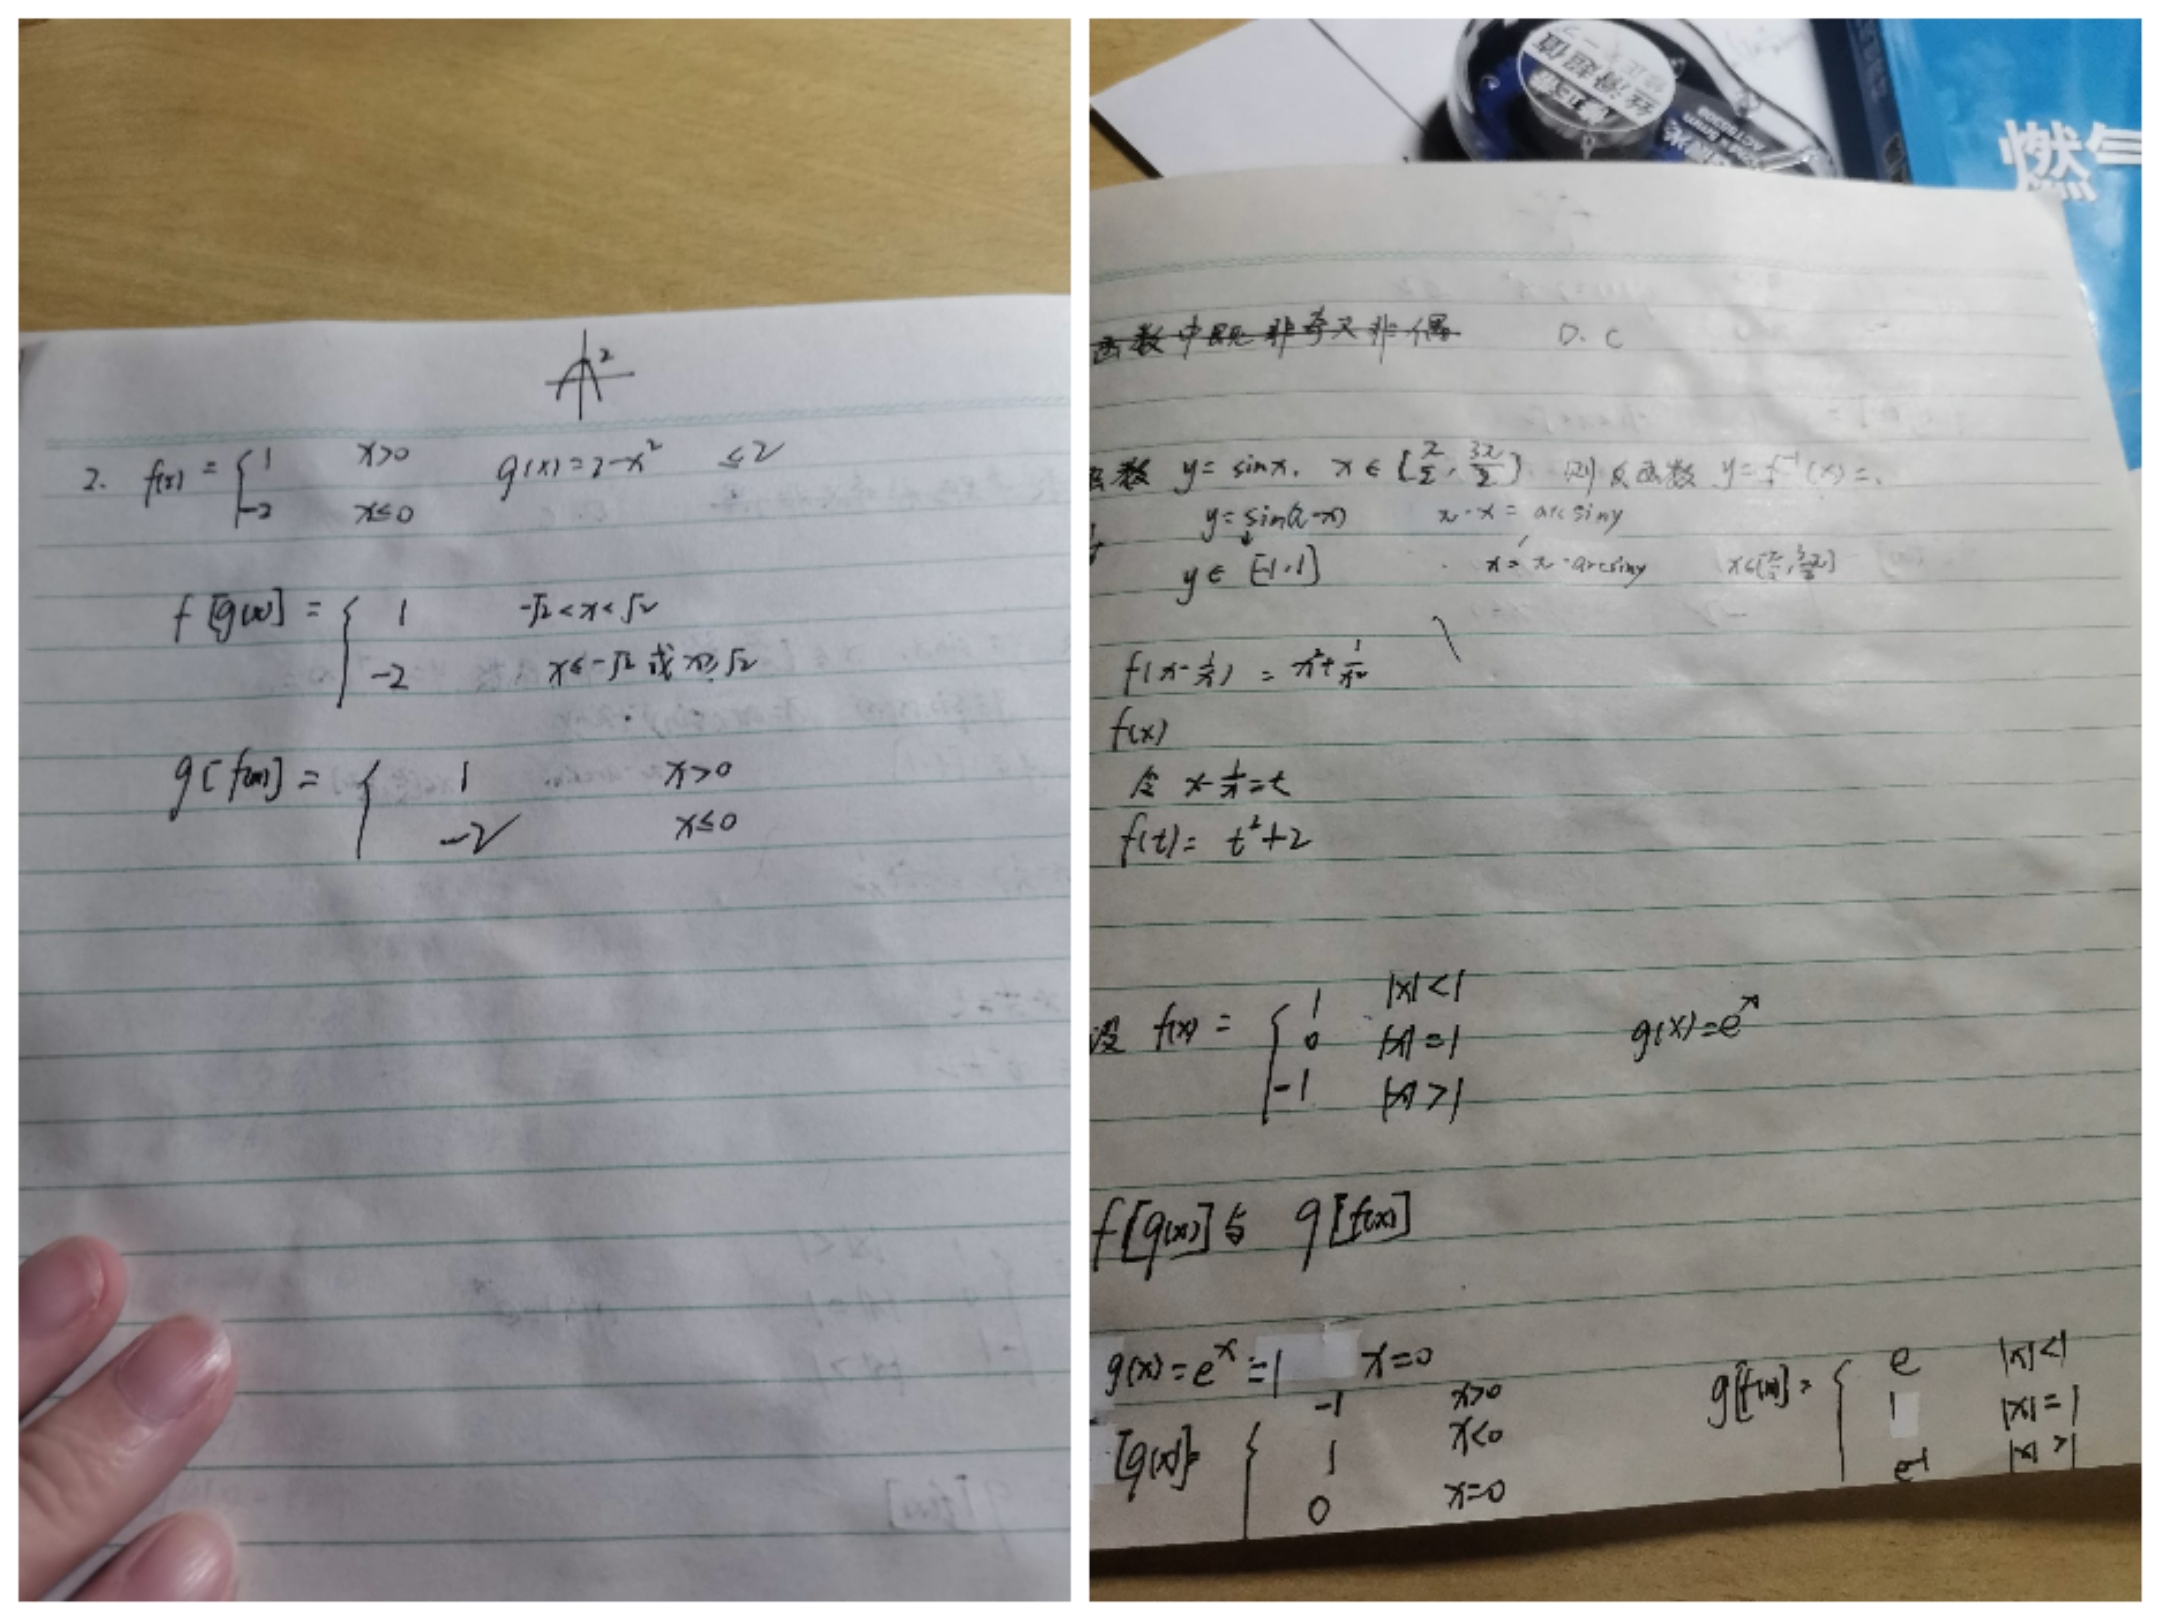 2
2. f(x) = { 1 x>0 g(x)=2-x² ≤2
-2 x≤0
f[g(x)] = { 1 -√2<x<√2
-2 x≤-√2 或 x≥√2
g[f(x)] = { 1 x>0
-2 x≤0
丝滑超值
燃气
函数中既非奇又非偶 D. C
函数 y= sinx, x∈[π/2, 3π/2] 则反函数 y=f⁻¹(x)=.
y=sin(π-x) π-x = arcsiny
y∈ [-1,1] x=π-arcsiny x∈[π/2, 3π/2]
f(x-1/x) = x²+1/x²
f(x)
令 x-1/x=t
f(t)= t²+2
设 f(x) = { 1 |x|<1 g(x)=eˣ
0 |x|=1
-1 |x|>1
f[g(x)]与 g[f(x)]
g(x)=eˣ=1 x=0
[g(x)]= { -1 x>0
1 x<0
0 x=0
g[f(x)]= { e |x|<1
1 |x|=1
e⁻¹ |x|>1